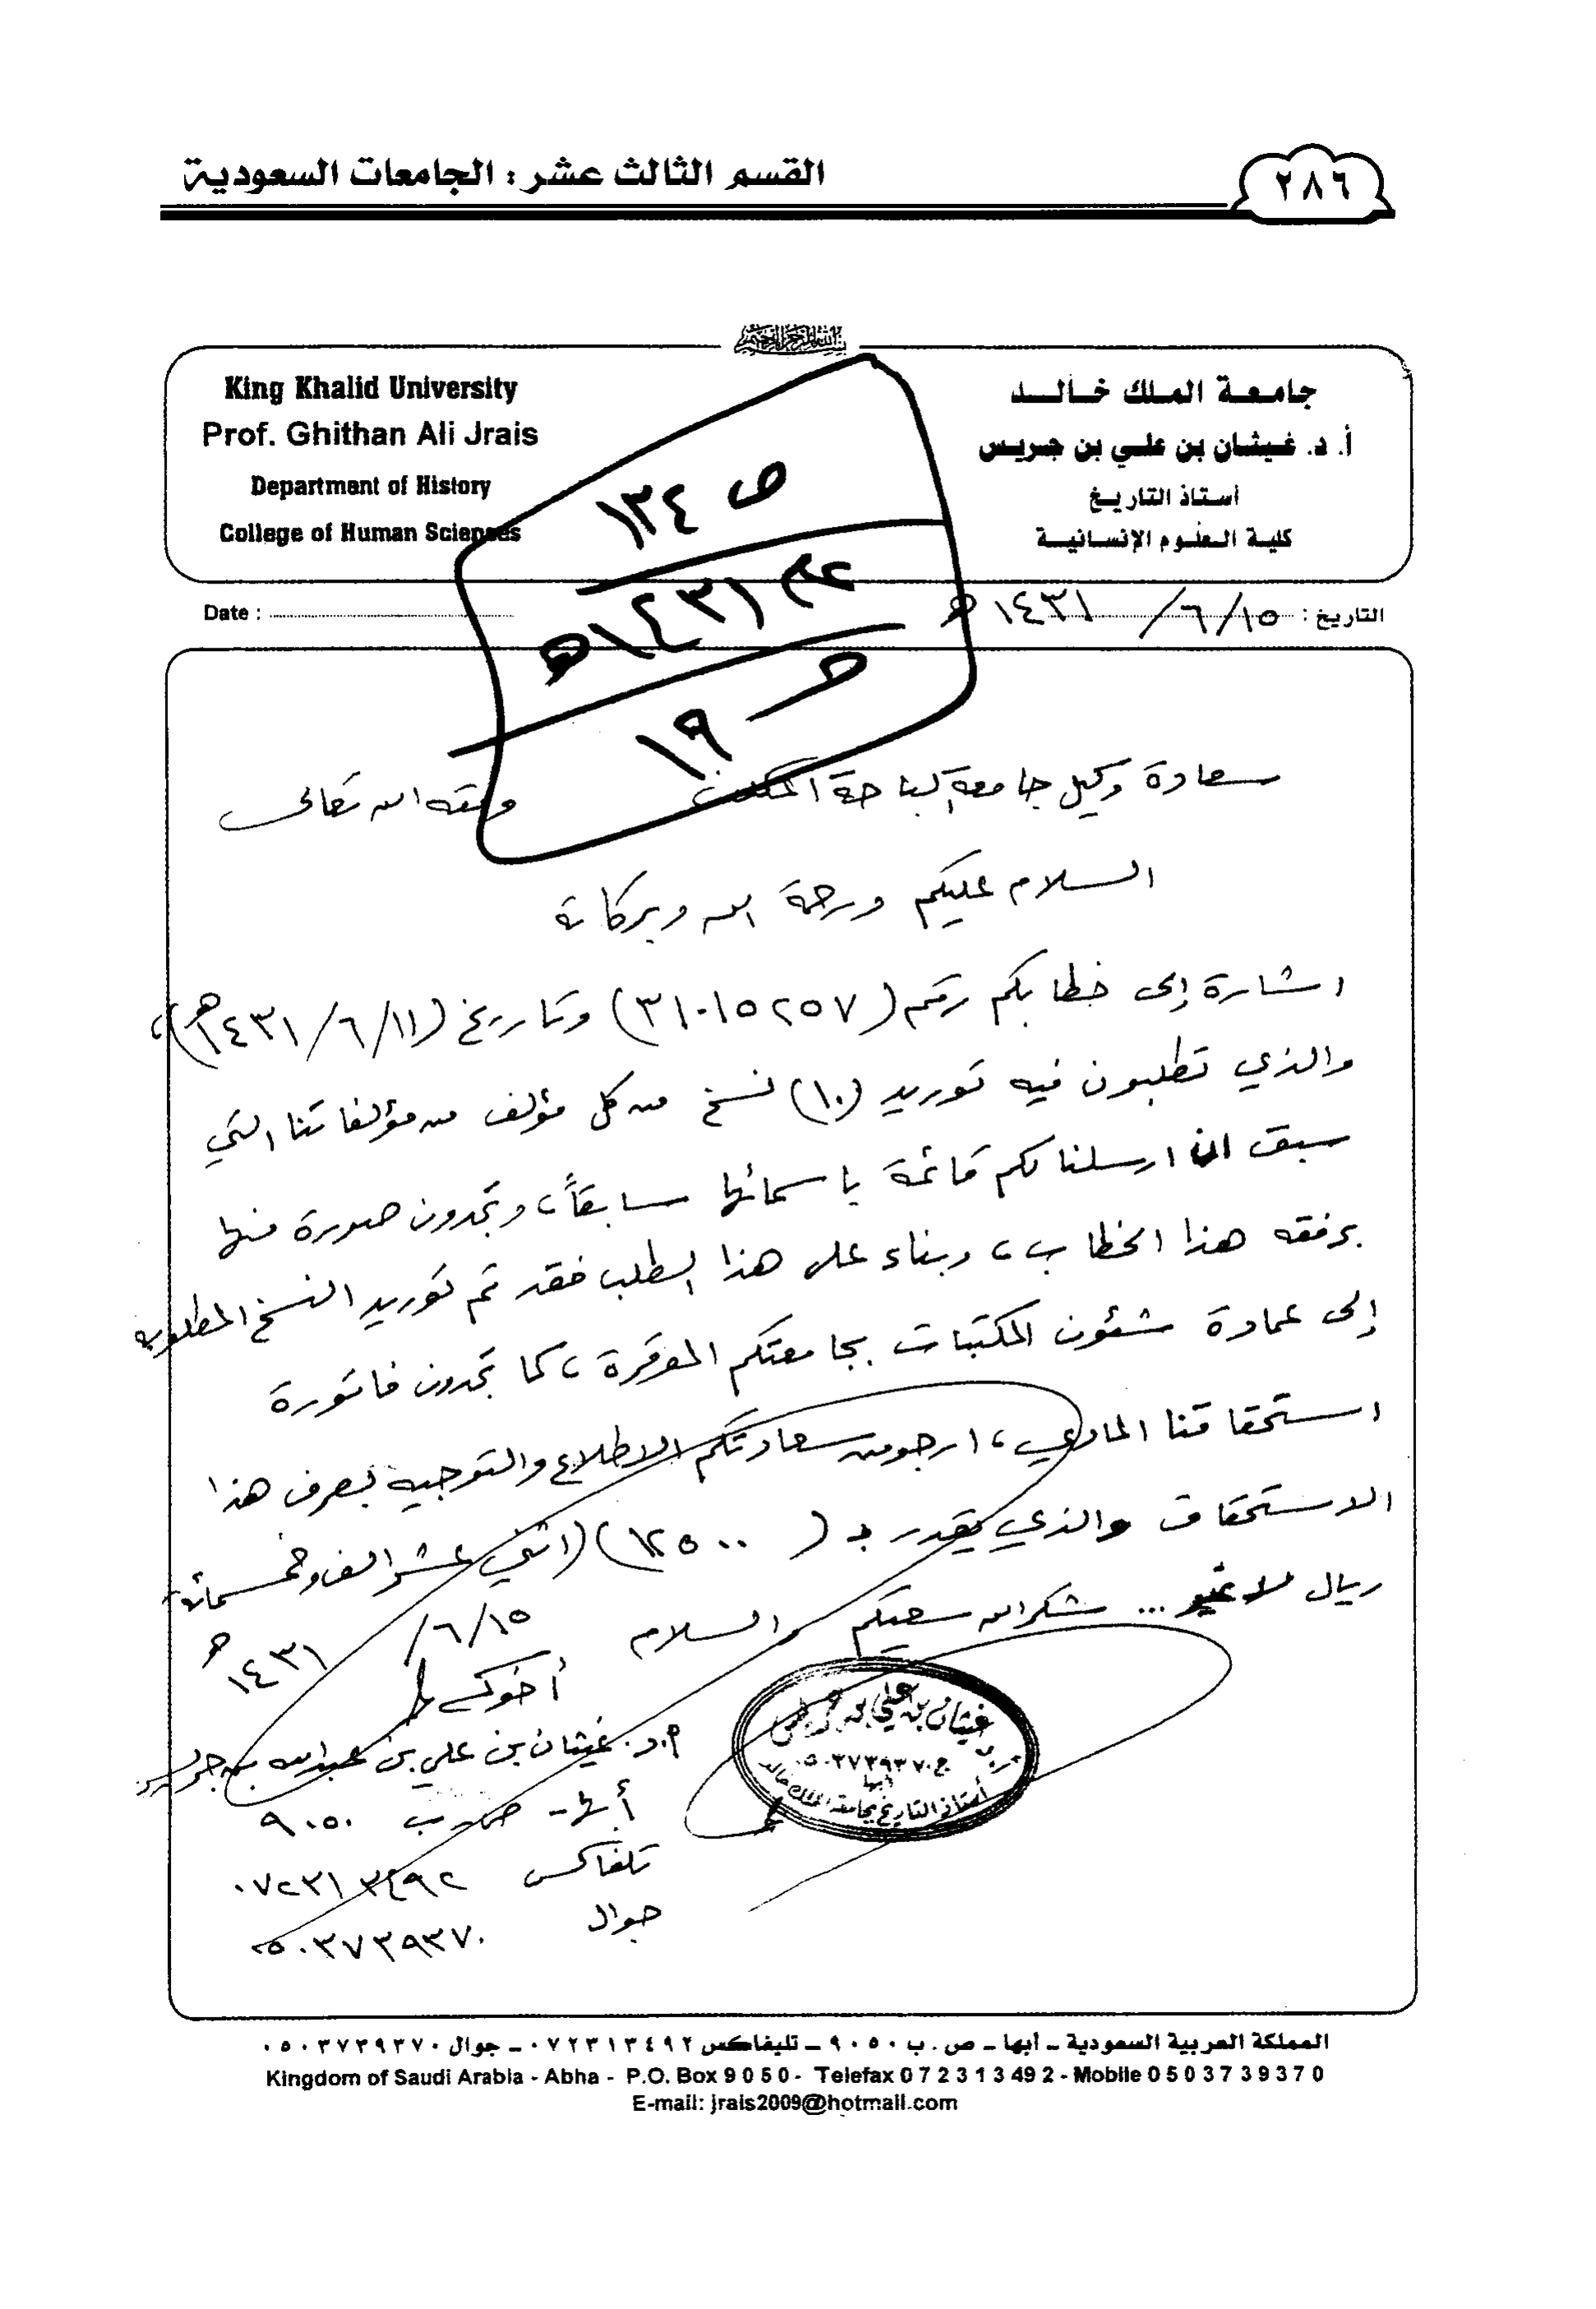 القسم الثالث عشر : الجامعات السعودية
٢٨٦
بسم الله الرحمن الرحيم
King Khalid University
Prof. Ghithan Ali Jrais
Department of History
College of Human Sciences
جامعة الملك خالد
أ. د. غيثان بن علي بن جريس
أستاذ التاريخ
كلية العلوم الإنسانية
ص ١٣٤
عام ١٤٣١هـ
حـ ١٩
Date :
التاريخ : ١٥/٦/١٤٣١هـ
سعادة وكيل جامعة الباحة المكلف وفقه الله تعالى
السلام عليكم ورحمة الله وبركاته
اشارة إلى خطابكم رقم (٣١٠١٥٢٥٧) وتاريخ (١١/٦/١٤٣١هـ)،
والذي تطلبون فيه توريد (١٠) نسخ من كل مؤلف من مؤلفاتنا التي
سبق ان ارسلنا لكم قائمة باسمائها سابقاً، وتجدون صورة منها
برفقه هذا الخطاب، وبناء على هذا الطلب فقد تم توريد النسخ المطلوبه
إلى عمادة شئون المكتبات بجامعتكم الموقرة، كما تجدون فاتورة
استحقاقنا المادي، ارجو من سعادتكم الاطلاع والتوجيه بصرف هذا
الاستحقاق والذي يقدر بـ (١٢٥٠٠) (اثني عشر الف وخمسمائة
ريال لا غير ... شكر الله سعيكم والسلام ١٥/٦/١٤٣١هـ
أخوكم
أ.د. غيثان بن علي بن عبدالله بن جريس
أبها - ص.ب ٩٠٥٠
تلفاكس ٠٧٢٣١٣٤٩٢
جوال ٠٥٠٣٧٣٩٣٧٠
غيثان بن علي بن جريس
ج ٠٥٠٣٧٣٩٣٧٠
أبها
أستاذ التاريخ بجامعة الملك خالد
المملكة العربية السعودية – أبها – ص . ب ٩٠٥٠ – تليفاكس ٠٧٢٣١٣٤٩٢ – جوال ٠٥٠٣٧٣٩٣٧٠
Kingdom of Saudi Arabia - Abha - P.O. Box 9 0 5 0 - Telefax 0 7 2 3 1 3 49 2 - Mobile 0 5 0 3 7 3 9 3 7 0
E-mail: jrais2009@hotmail.com